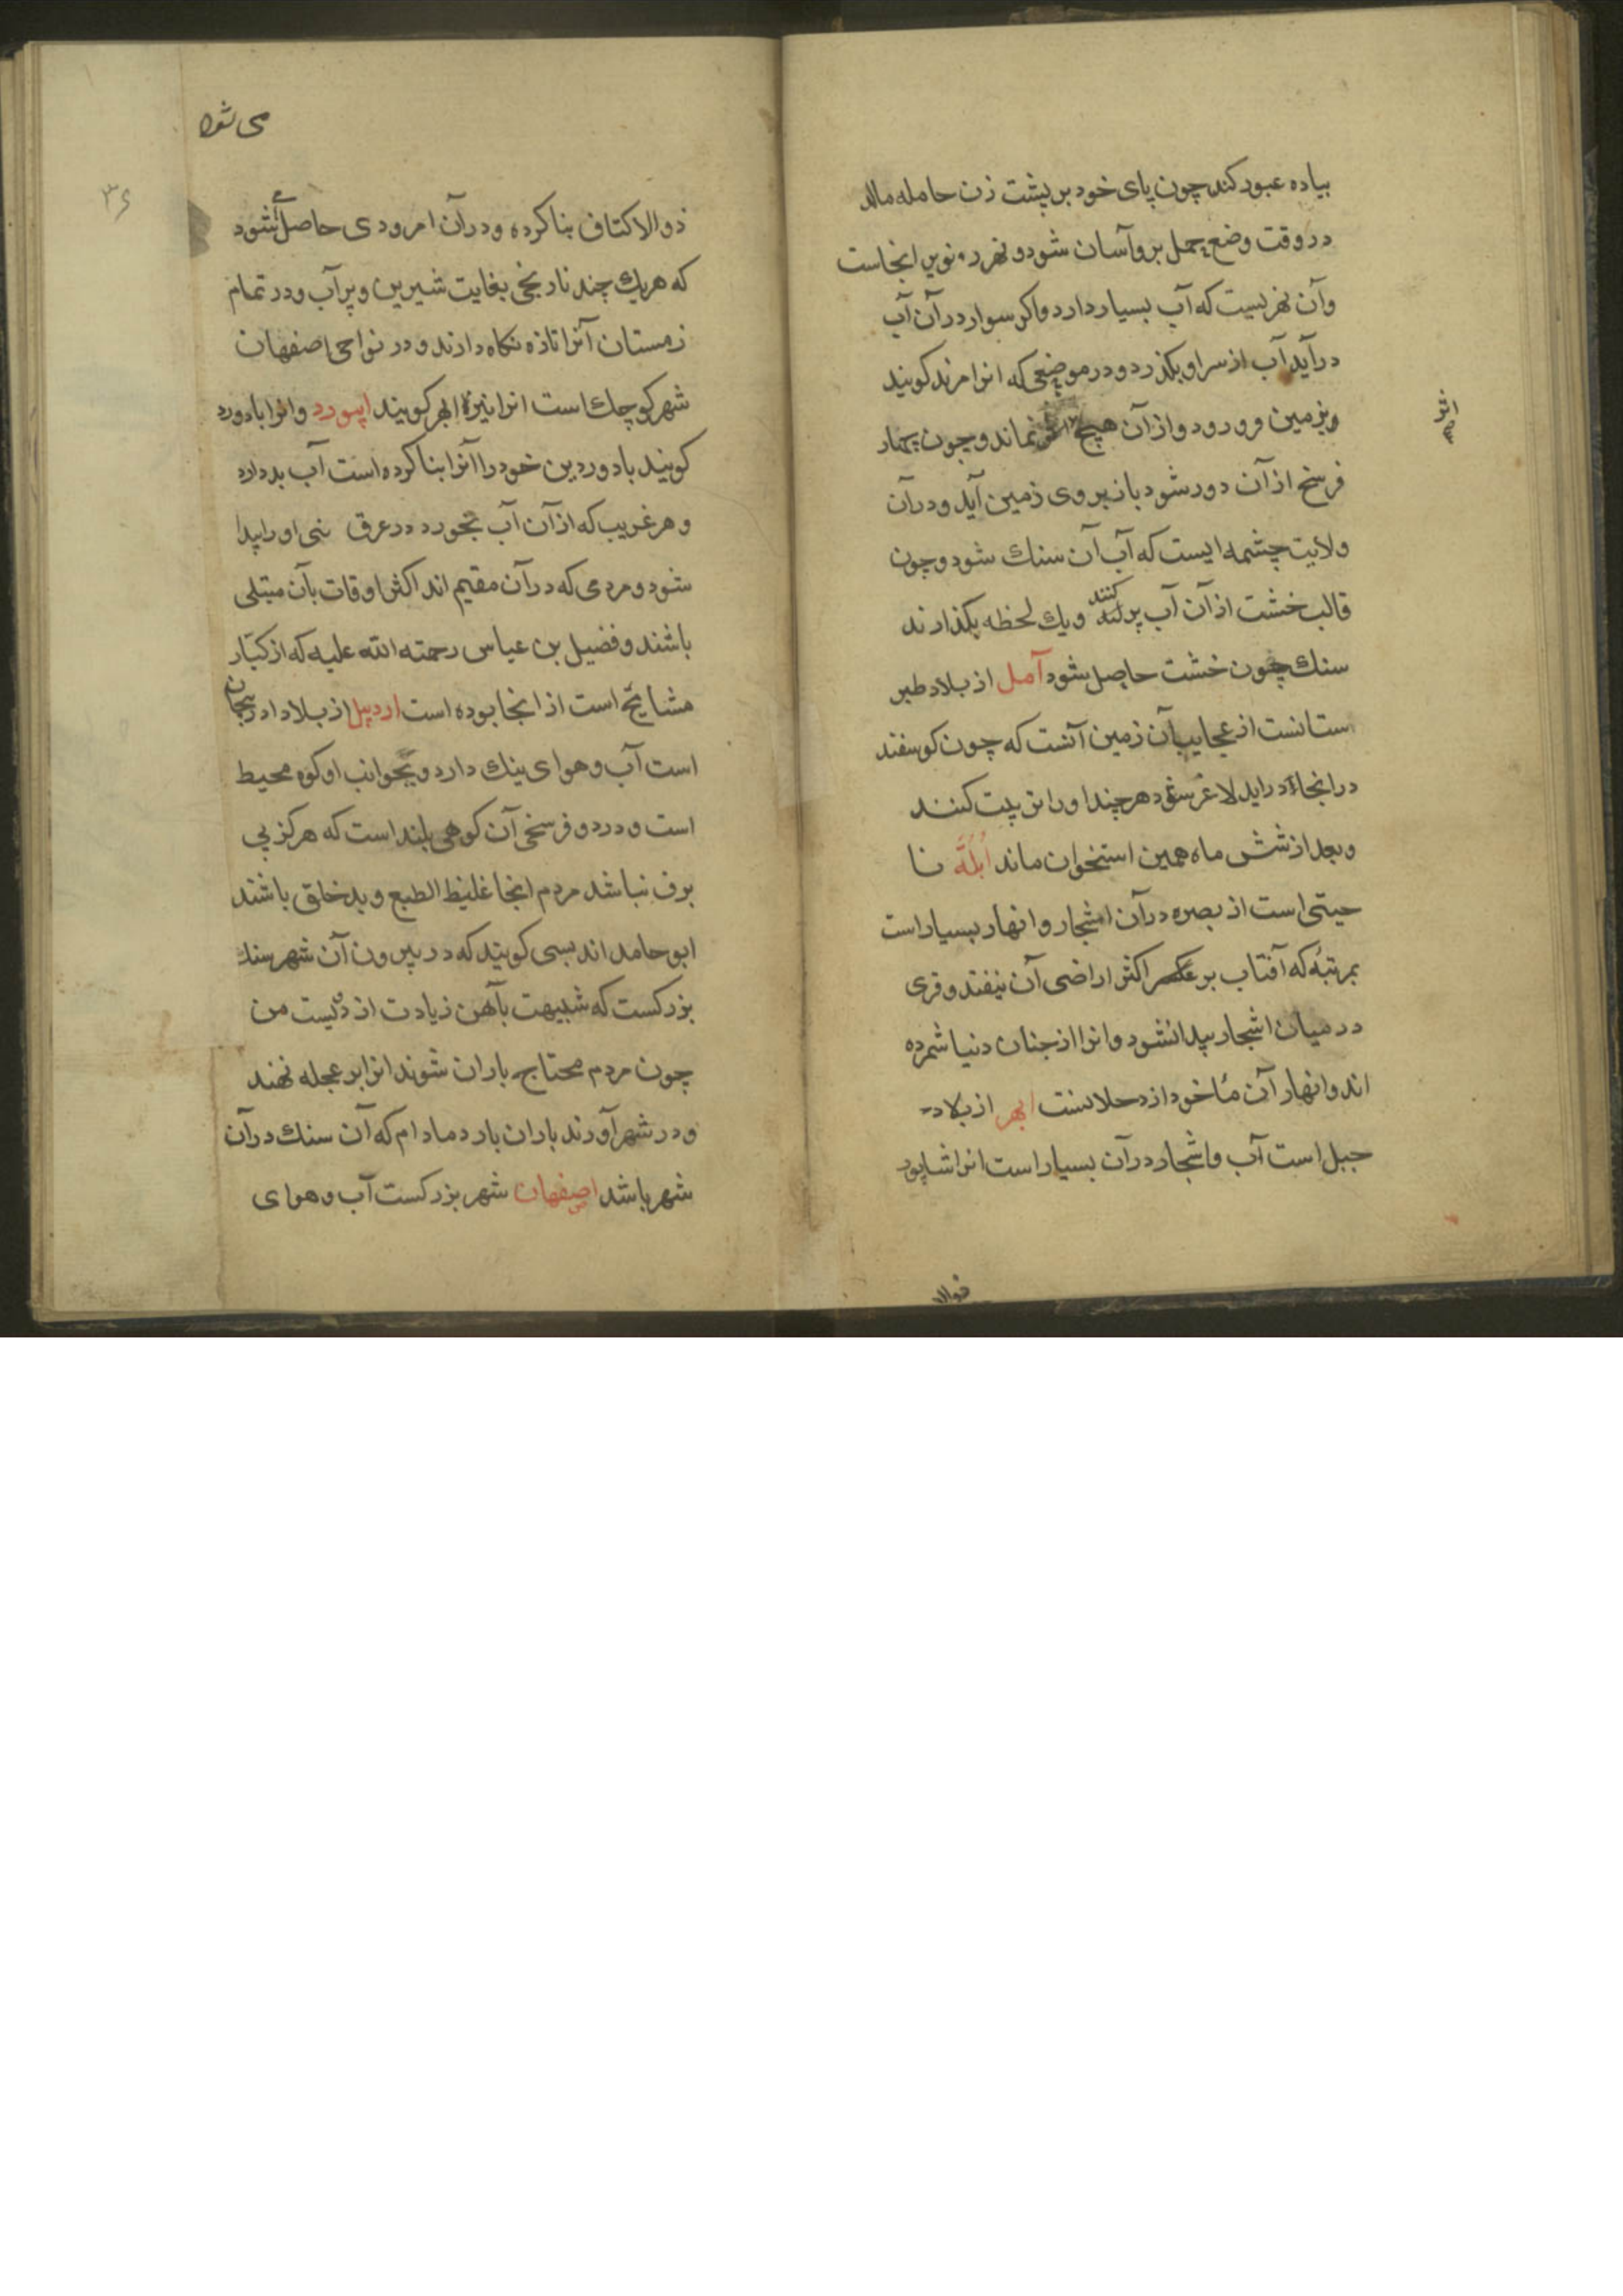 پیاده عبور کند چون پای خود بر پشت زن حامله مالد
در وقت وضع حمل بر و آسان شود و نهر انجاست
وآن نهریست که آب بسیار دارد واکر سوار در آن آب
در آید آب از سر او بکذرد و در موضعی که انرا مرند کویند
بزمین فرو رود و از آن هیچ نماند و چون چهار
اثر
فرسخ از آن دور شود باز بروی زمین آید و در آن
ولایت چشمه ایست که آب آن سنك شود و چون
قالب خشت از آن آب پر کنند ویك لحظه بکذارند
سنك چون خشت حاصل شود آمل از بلاد طبر
ستانست از عجایب آن زمین آنست که چون کوسفند
در انجا در اید لاغر شود هر چند او را تربیت کنند
وبعد از شش ماه همین استخوان ماند اُبُلَّه نا
حیتی است از بصره در آن اشجار و انهار بسیار است
بمرتبهٔ که آفتاب بر اکثر اراضی آن نیفتد و قری
در میان اشجار پیدا نشود وانرا از جنان دنیا شمرده
اند و انهار آن مأخود از دجلاست ابهر از بلاد
جبل است آب و اشجار در آن بسیار است انرا شاپور
ذوالا
می شود
۳۶
ذوالاکتاف بنا کرده و در آن امرودی حاصل می شود
که هریك چند نارنجی بغایت شیرین و پر آب و در تمام
زمستان آنرا تازه نکاه دارند و در نواحی اصفهان
شهر کوچك است انرا نیز ابهر کویند ابیورد وانرا باورد
کویند باورد بن خود را آنرا بنا کرده است آب بد دارد
و هر غریب که از آن آب بخورد در عرق او را پیدا
شود و مردمی که در آن مقیم اند اکثر اوقات بآن مبتلی
باشند و فضیل بن عیاس رحمته الله علیه که از کبار
مشایخ است از انجا بوده است اردبیل از بلاد ادربیجان
است آب و هوای نیك دارد و بجوانب او کوه محیط
است و در دو فرسخی آن کوهی بلند است که هرکز بی
برف نباشد مردم انجا غلیظ الطبع و بد خلق باشند
ابو حامد اندبسی کویند که در بیرون آن شهر سنك
بزرکست که شبیهت بآهن زیادت از دویست من
چون مردم محتاج باران شوند انرا بر عجله نهند
و در شهر آورند باران بارد مادام که آن سنك در آن
شهر باشد اصفهان شهر بزرکست آب و هوای